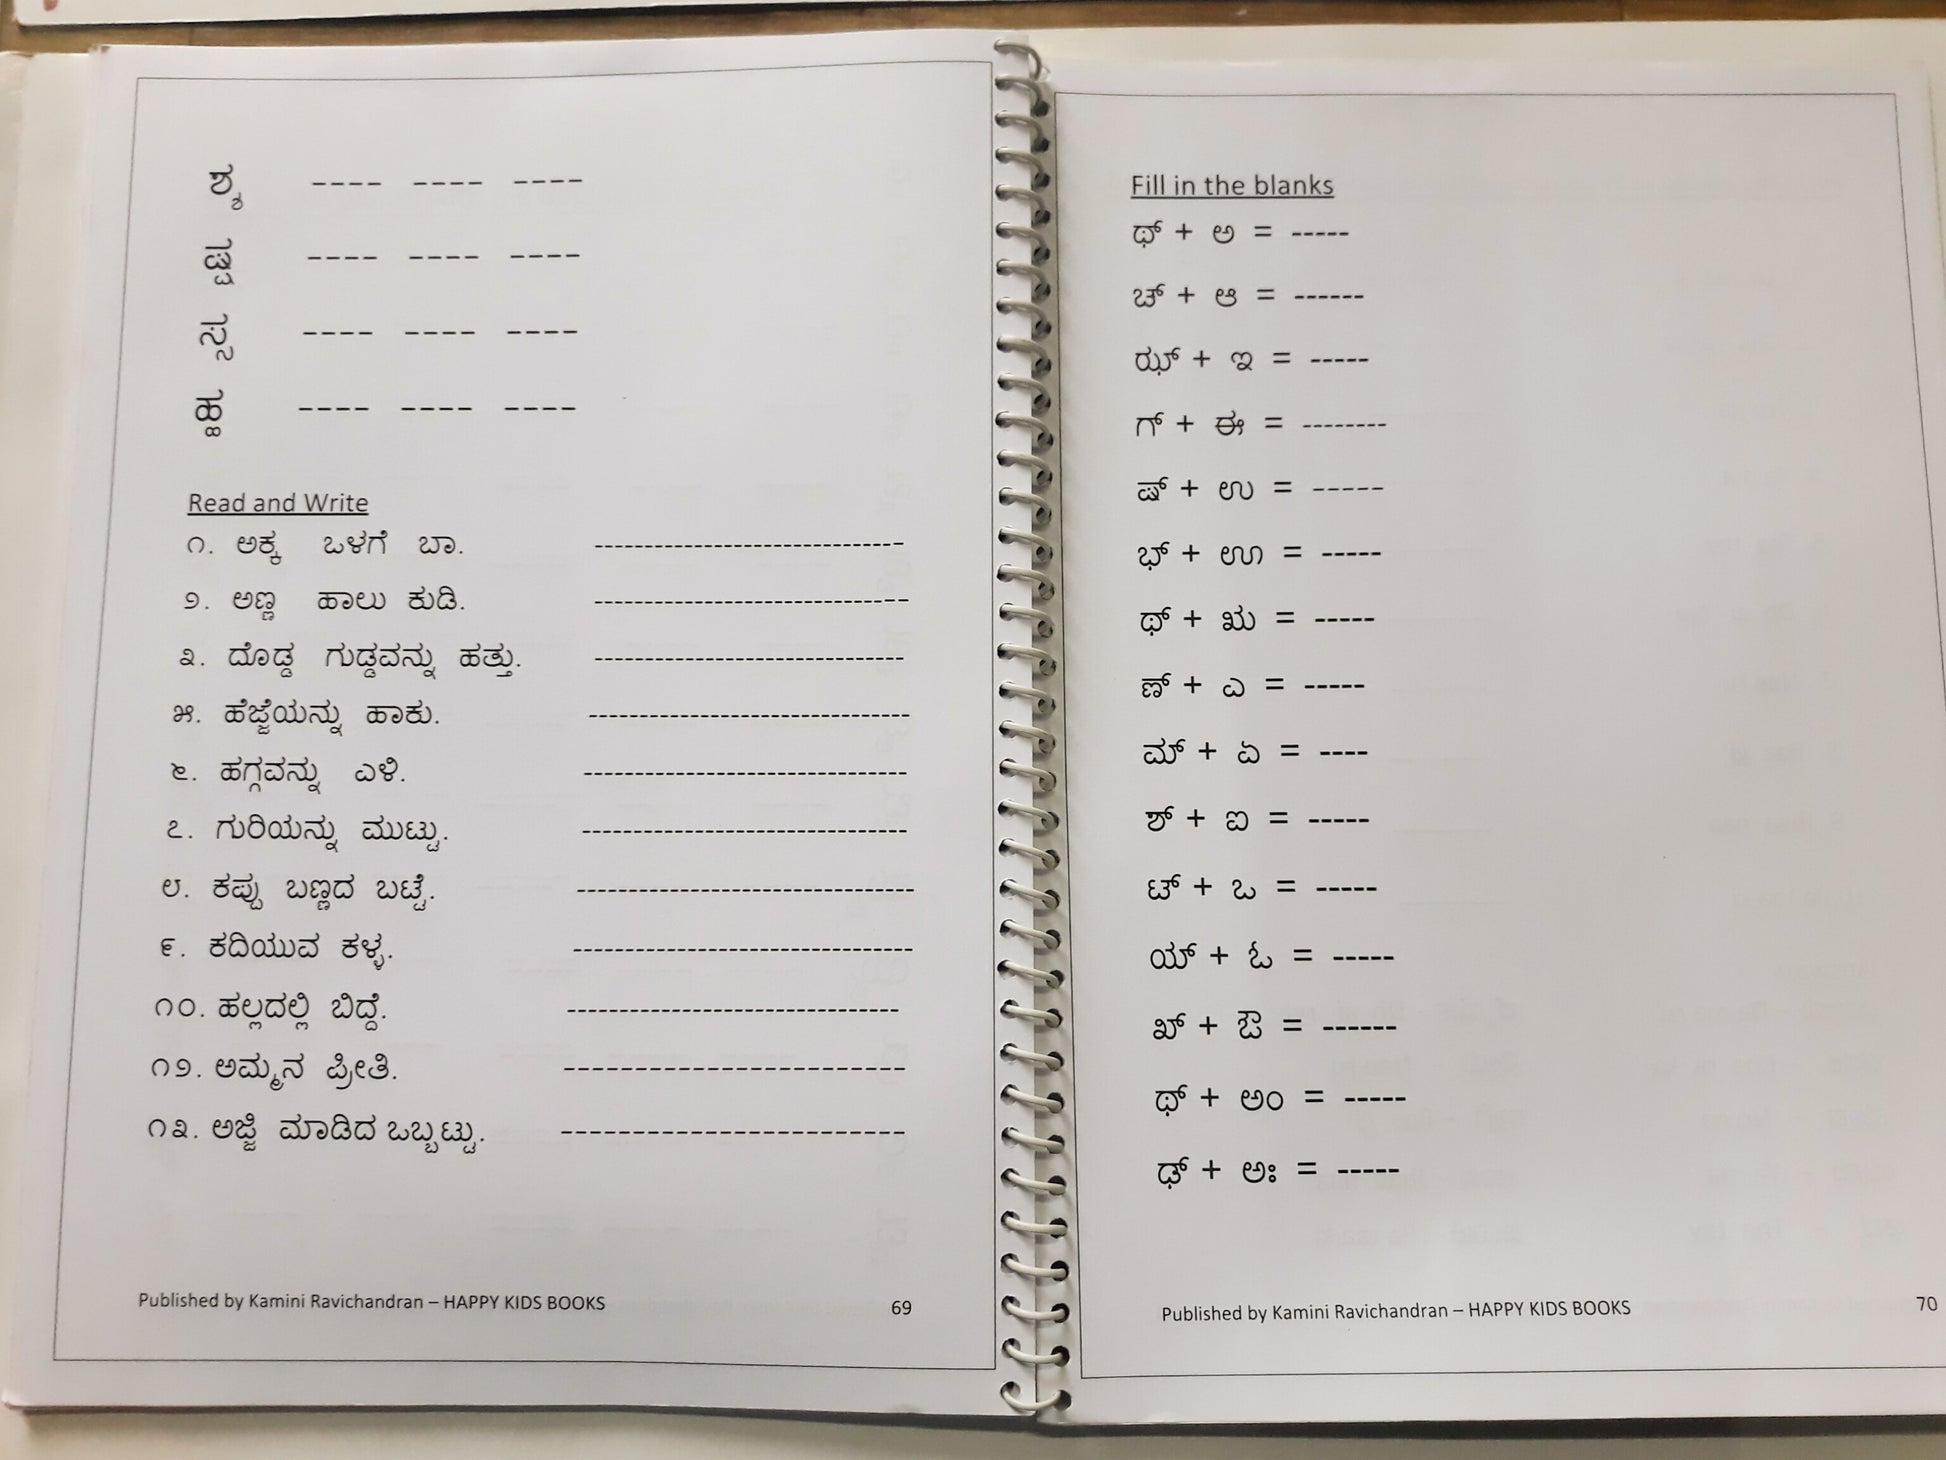 ಶ್ಶ ---- ---- ----
ಷ್ಷ ---- ---- ----
ಸ್ಸ ---- ---- ----
ಹ್ಹ ---- ---- ----
Read and Write
೧. ಅಕ್ಕ ಒಳಗೆ ಬಾ. ------------------------------
೨. ಅಣ್ಣ ಹಾಲು ಕುಡಿ. ------------------------------
೩. ದೊಡ್ಡ ಗುಡ್ಡವನ್ನು ಹತ್ತು. ------------------------------
೫. ಹೆಜ್ಜೆಯನ್ನು ಹಾಕು. ------------------------------
೬. ಹಗ್ಗವನ್ನು ಎಳಿ. ------------------------------
೭. ಗುರಿಯನ್ನು ಮುಟ್ಟು. ------------------------------
೮. ಕಪ್ಪು ಬಣ್ಣದ ಬಟ್ಟೆ. ------------------------------
೯. ಕದಿಯುವ ಕಳ್ಳ. ------------------------------
೧೦. ಹಲ್ಲದಲ್ಲಿ ಬಿದ್ದೆ. ------------------------------
೧೨. ಅಮ್ಮನ ಪ್ರೀತಿ. ------------------------------
೧೩. ಅಜ್ಜಿ ಮಾಡಿದ ಒಬ್ಬಟ್ಟು. ------------------------------
Published by Kamini Ravichandran – HAPPY KIDS BOOKS 69
Fill in the blanks
ಥ್ + ಅ = -----
ಚ್ + ಆ = ------
ಝ್ + ಇ = -----
ಗ್ + ಈ = --------
ಷ್ + ಉ = ------
ಭ್ + ಊ = -----
ಥ್ + ಋ = -----
ಣ್ + ಎ = -----
ಮ್ + ಏ = ----
ಶ್ + ಐ = -----
ಟ್ + ಒ = -----
ಯ್ + ಓ = -----
ಖ್ + ಔ = ------
ಥ್ + ಅಂ = -----
ಢ್ + ಅಃ = -----
Published by Kamini Ravichandran – HAPPY KIDS BOOKS 70